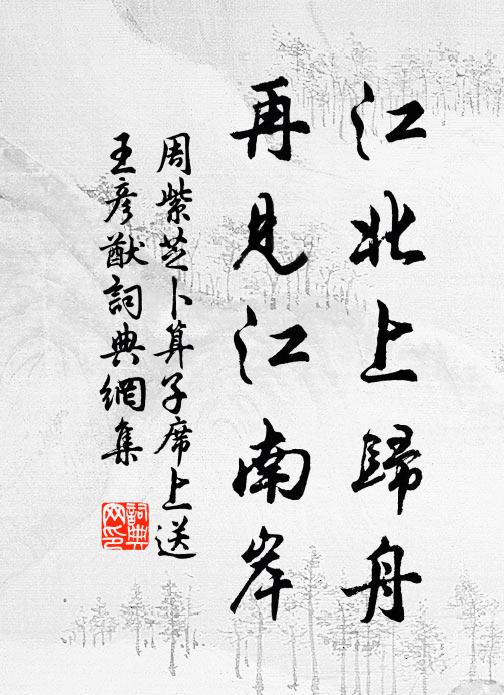 江北上歸舟
再見江南岸
周紫芝卜算子席上送
王彥猷詞典網集
詞典
网印